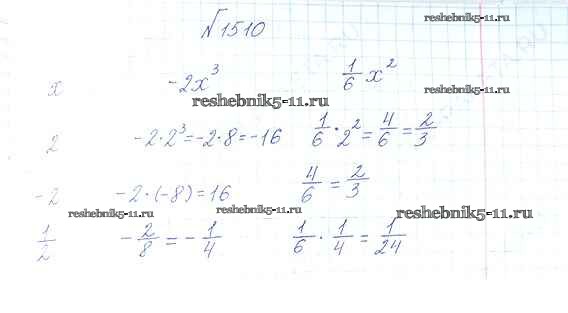 №1510
reshebnik5-11.ru
x -2x³ 1/6 x²
reshebnik5-11.ru
reshebnik5-11.ru
2 -2·2³=-2·8=-16 1/6·2²=4/6=2/3
-2 -2·(-8)=16 4/6=2/3
reshebnik5-11.ru reshebnik5-11.ru reshebnik5-11.ru
1/2 -2/8=-1/4 1/6·1/4=1/24